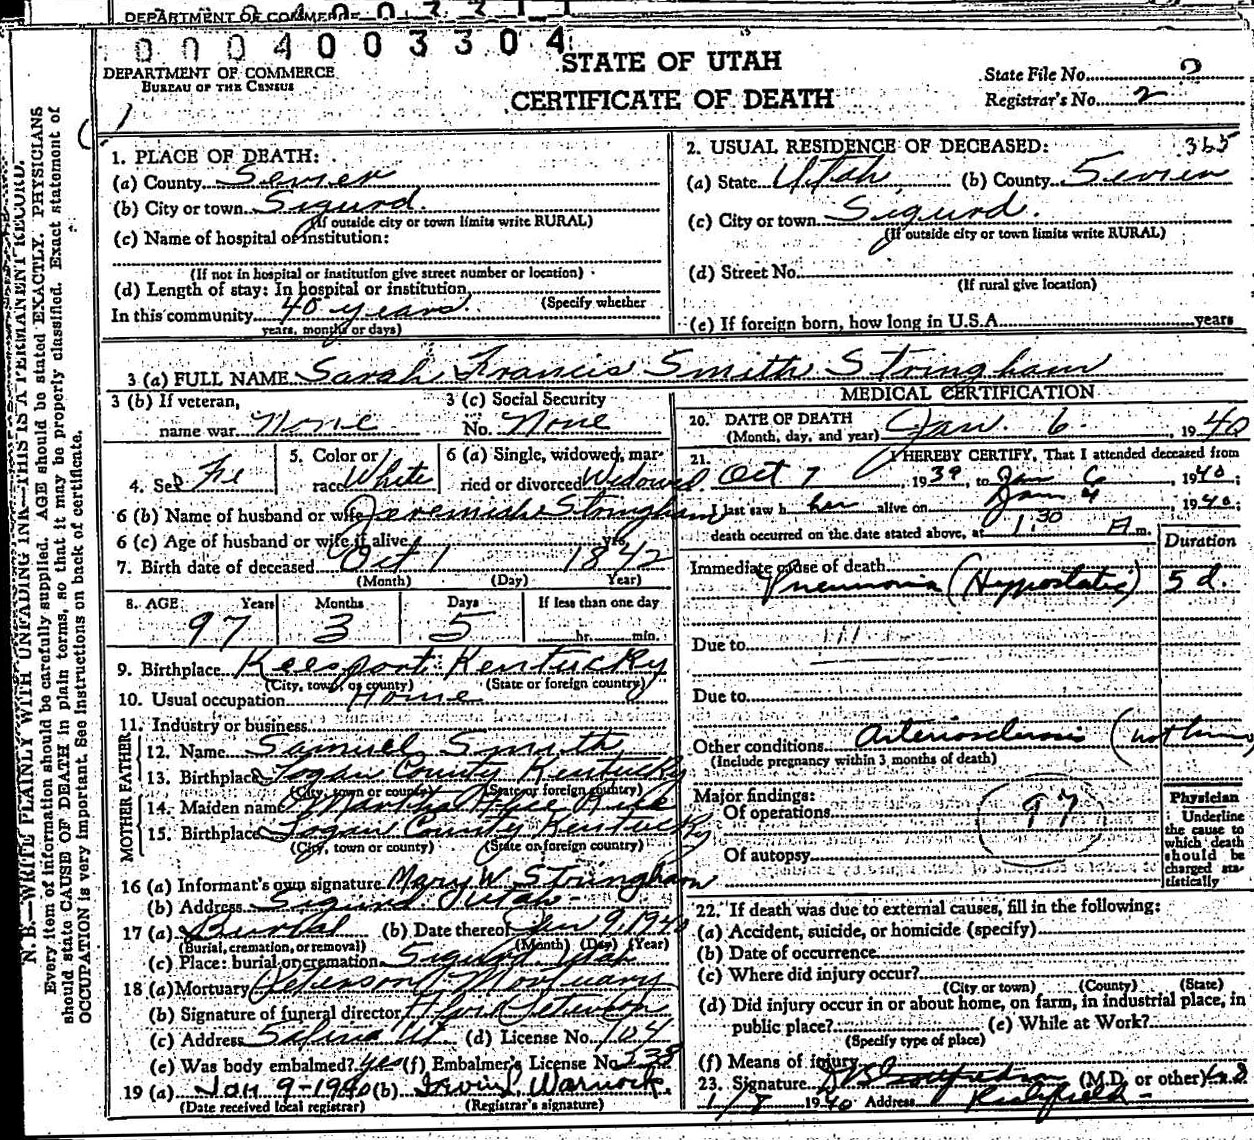 DEPARTMENT OF COMMERCE
0004003304
STATE OF UTAH
CERTIFICATE OF DEATH
DEPARTMENT OF COMMERCE
BUREAU OF THE CENSUS
State File No. 2
Registrar's No. 2
N. B.—WRITE PLAINLY WITH UNFADING INK—THIS IS A PERMANENT RECORD.
Every item of information should be carefully supplied. AGE should be stated EXACTLY. PHYSICIANS
should state CAUSE OF DEATH in plain terms, so that it may be properly classified. Exact statement of
OCCUPATION is very important. See instructions on back of certificate.
1. PLACE OF DEATH:
(a) County Sevier
(b) City or town Sigurd.
(If outside city or town limits write RURAL)
(c) Name of hospital or institution:
(If not in hospital or institution give street number or location)
(d) Length of stay: In hospital or institution
(Specify whether
In this community 40 years
years, months or days)
2. USUAL RESIDENCE OF DECEASED: 365
(a) State Utah (b) County Sevier
(c) City or town Sigurd.
(If outside city or town limits write RURAL)
(d) Street No.
(If rural give location)
(e) If foreign born, how long in U.S.A. years
3 (a) FULL NAME Sarah Francis Smith Stringham
3 (b) If veteran, name war None
3 (c) Social Security No. None
4. Sex Fe
5. Color or race White
6 (a) Single, widowed, married or divorced Widowed
6 (b) Name of husband or wife Jeremiah Stringham
6 (c) Age of husband or wife if alive yrs.
7. Birth date of deceased Oct 1 1842
(Month) (Day) Year)
8. AGE Years Months Days If less than one day
97 3 5 hr. min.
9. Birthplace Keesport Kentucky
(City, town, or county) (State or foreign country)
10. Usual occupation Home
11. Industry or business
FATHER
12. Name Samuel Smith
13. Birthplace Logan County Kentucky
(City, town or county) (State or foreign country)
MOTHER
14. Maiden name Martha Alice
15. Birthplace Logan County Kentucky
(City, town or county) (State or foreign country)
16 (a) Informant's own signature Mary W. Stringham
(b) Address Sigurd Utah
17 (a) Burial (b) Date thereof Jan 9 1940
(Burial, cremation, or removal) (Month) (Day) (Year)
(c) Place: burial or cremation Sigurd Utah
18 (a) Mortuary Peterson Mortuary
(b) Signature of funeral director Peterson
(c) Address Salina Ut. (d) License No. 104
(e) Was body embalmed? yes (f) Embalmer's License No. 238
19 (a) Jan 9-1940 (b) Irvin L. Warnock.
(Date received local registrar) (Registrar's signature)
MEDICAL CERTIFICATION
20. DATE OF DEATH
(Month, day, and year) Jan. 6. 1940
21. I HEREBY CERTIFY, That I attended deceased from
Oct 7, 1939, to Jan 6, 1940;
I last saw her alive on Jan 4, 1940;
death occurred on the date stated above, at 1:30 A m.
Duration
Immediate cause of death
Pneumonia (Hypostatic) 5 d.
Due to
Due to
Other conditions Arteriosclerosis
(Include pregnancy within 3 months of death)
Major findings:
Of operations
97
Of autopsy
Physician
Underline
the cause to
which death
should be
charged sta-
tistically
22. If death was due to external causes, fill in the following:
(a) Accident, suicide, or homicide (specify)
(b) Date of occurrence
(c) Where did injury occur?
(City or town) (County) (State)
(d) Did injury occur in or about home, on farm, in industrial place, in
public place? (e) While at Work?
(Specify type of place)
(f) Means of injury
23. Signature (M.D. or other)
1/8 1940 Address Richfield